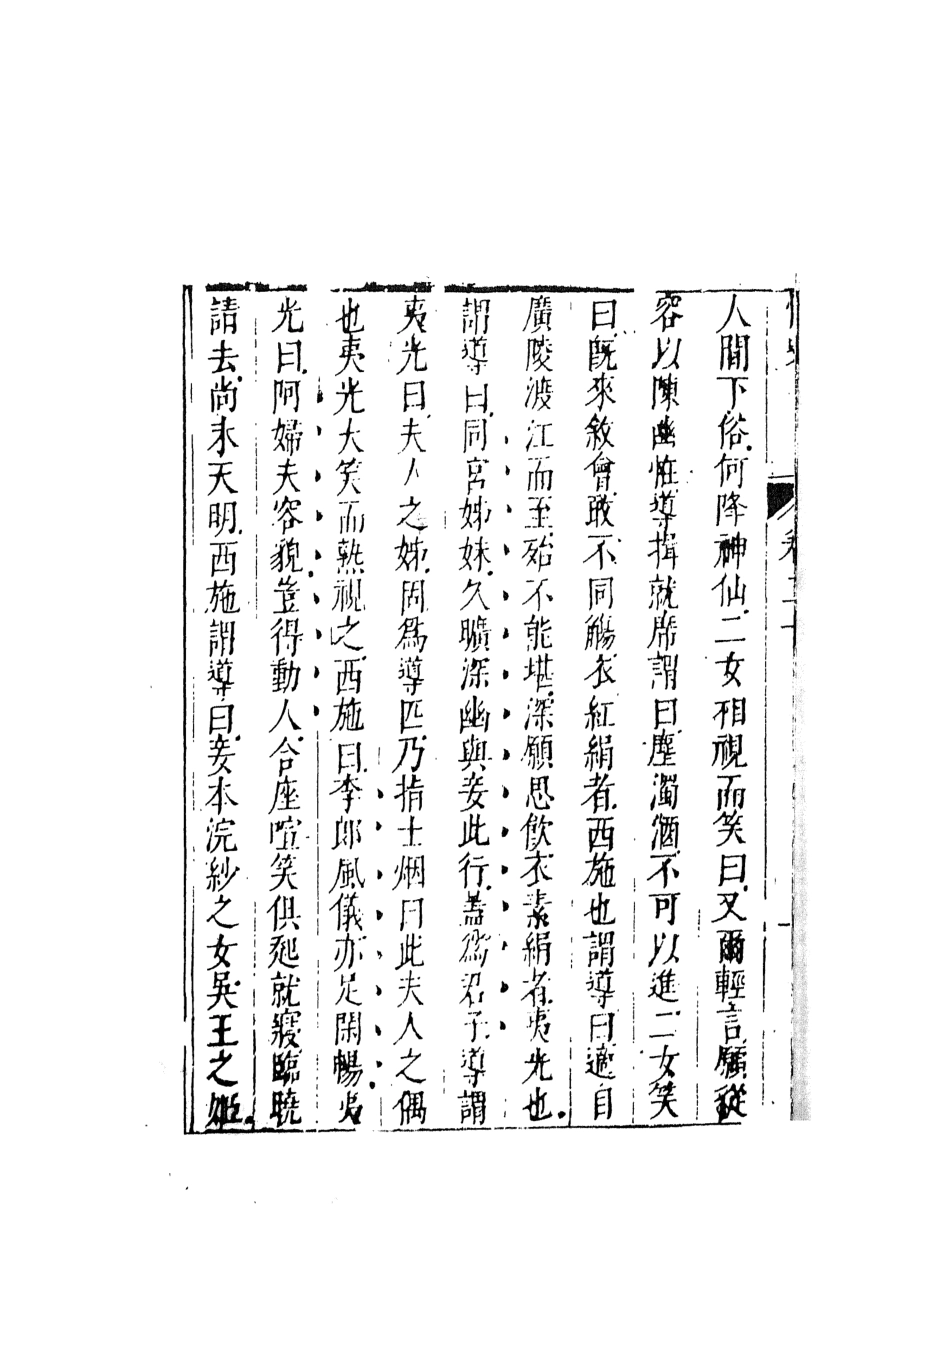 人間下俗何降神仙二女相視而笑曰又爾輕言願從
容以陳幽懷導揖就席謂曰塵濁酒不可以進二女笑
曰旣來敘會敢不同觴衣紅絹者西施也謂導曰適自
廣陵渡江而至殆不能堪深願思飲衣素絹者夷光也
謂導曰同宮姊妹久曠深幽與妾此行蓋爲君子導謂
夷光曰夫人之姊固爲導匹乃指士烟曰此夫人之偶
也夷光大笑而熟視之西施曰李郎風儀亦足閑暢夷
光曰阿婦夫容貌豈得動人合座喧笑俱起就寢臨曉
請去尚未天明西施謂導曰妾本浣紗之女吳王之姬